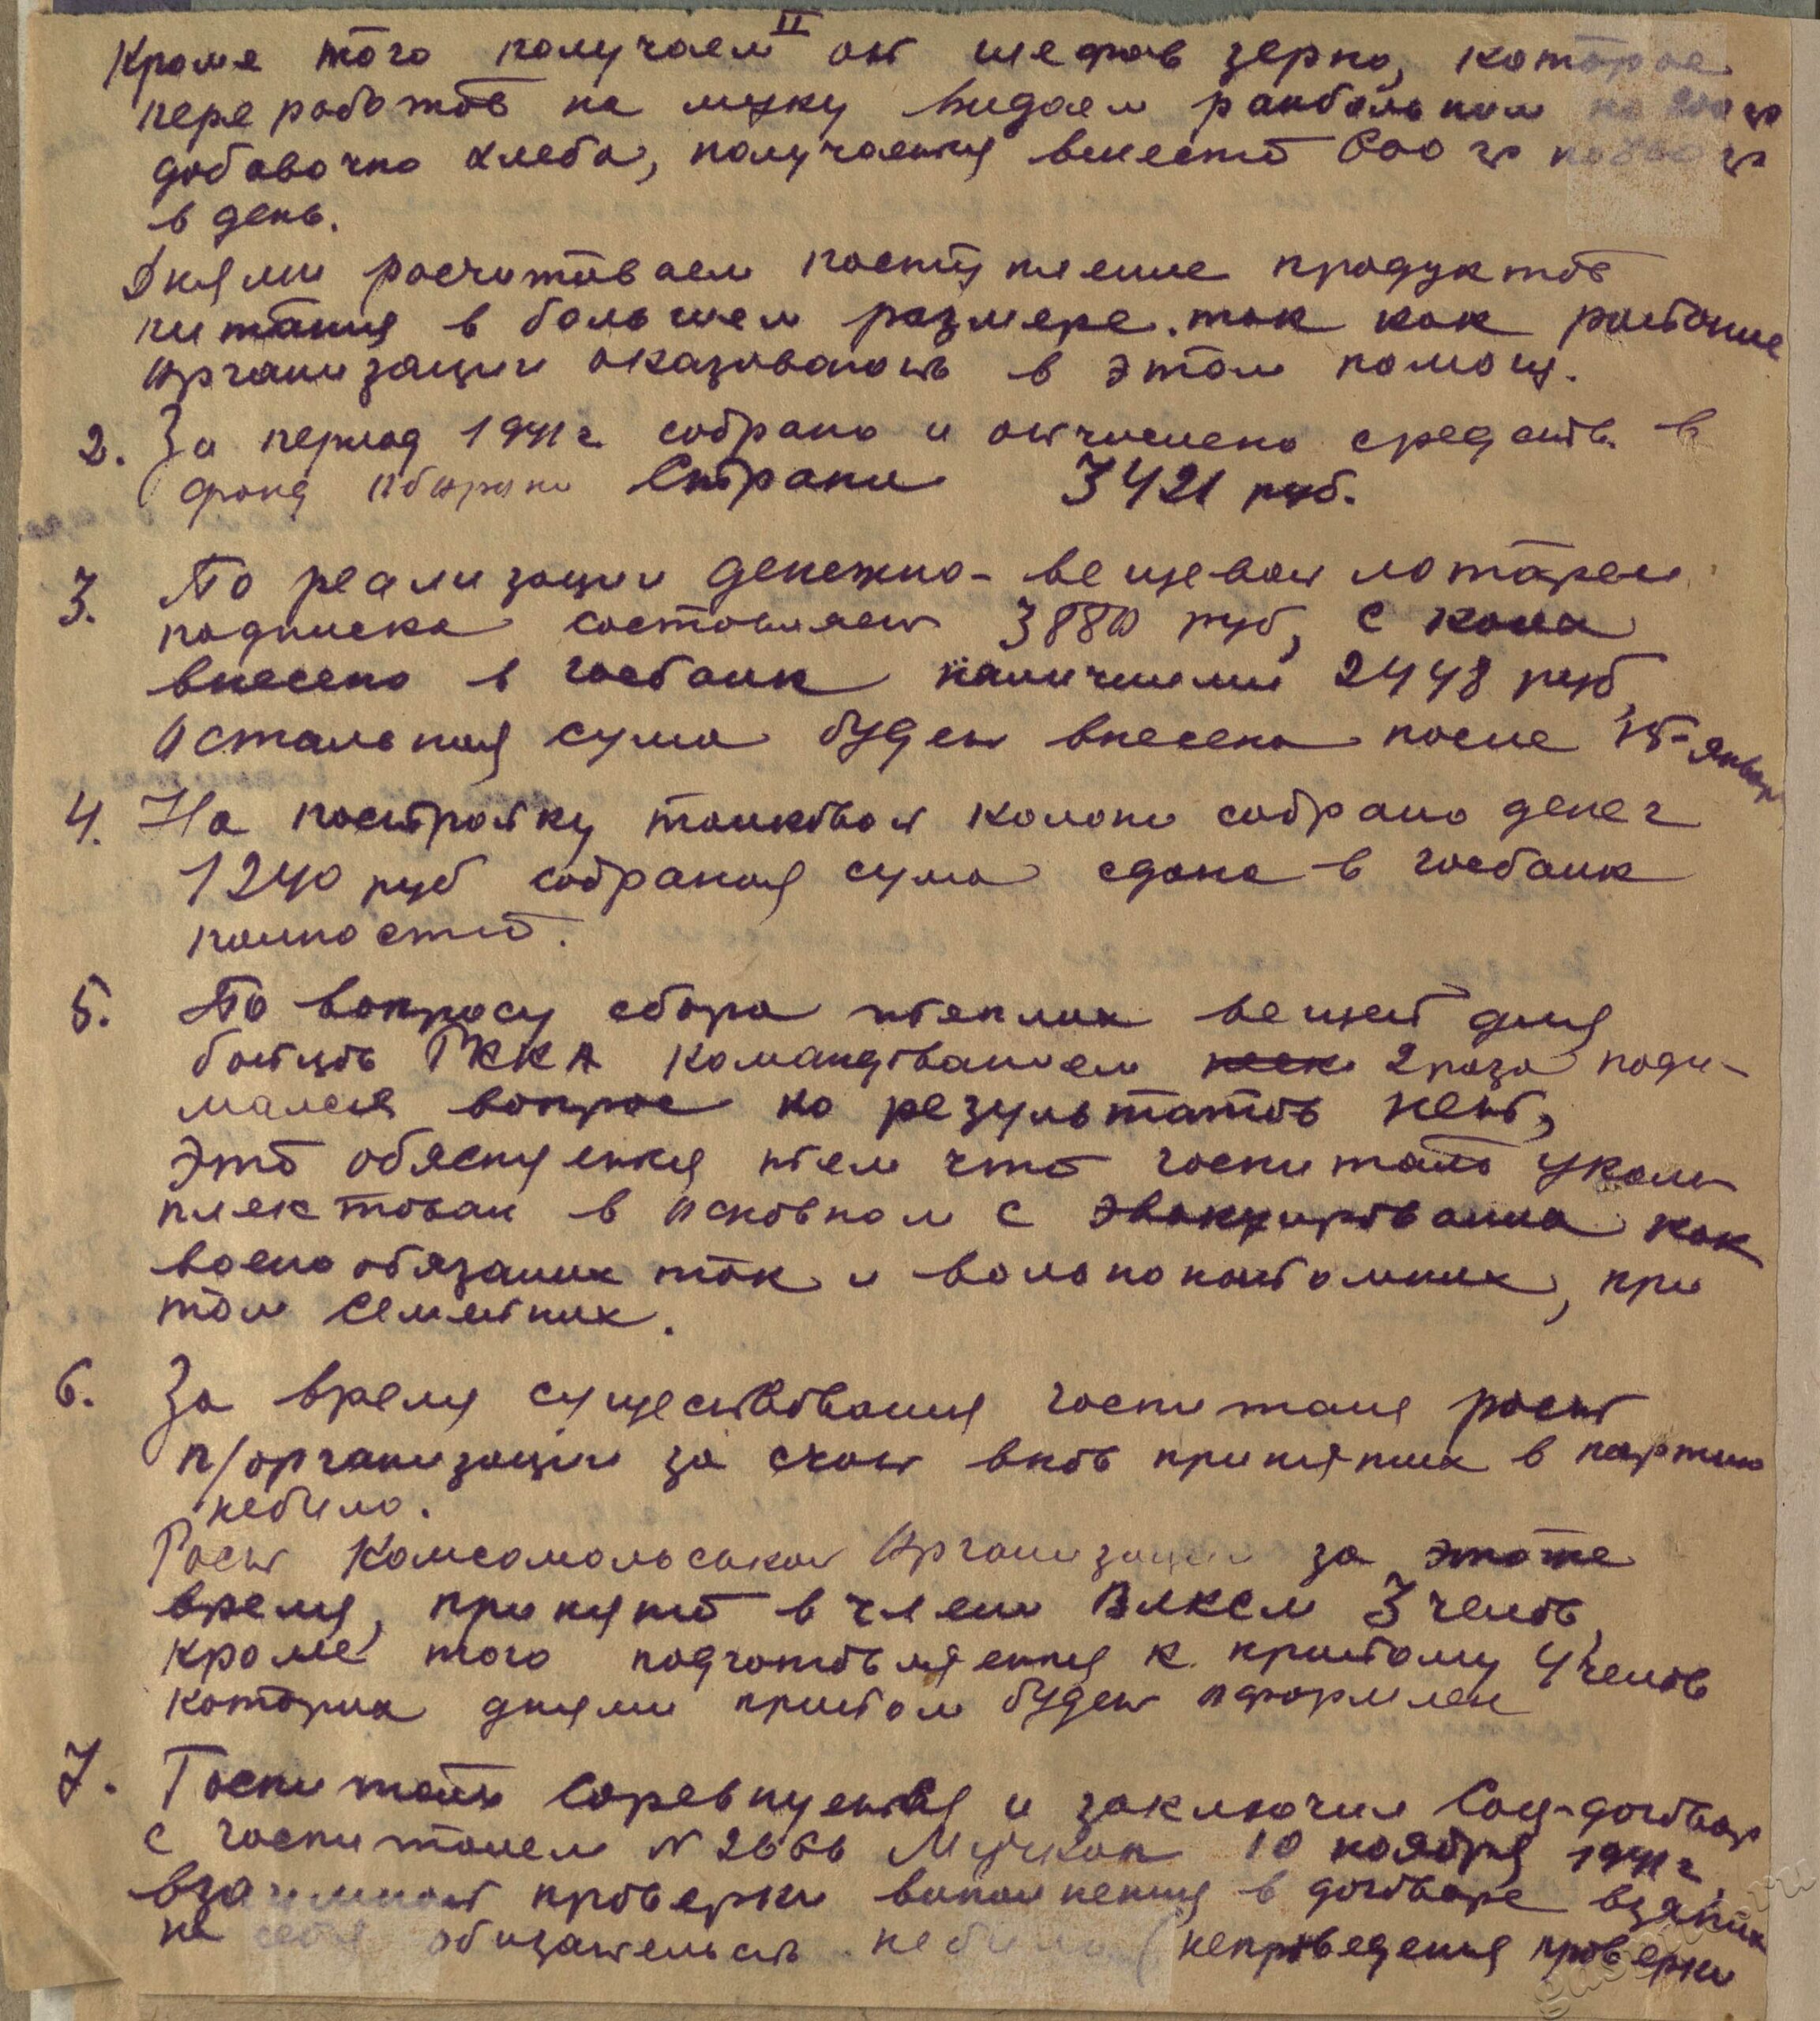 II
Кроме того получаем от шефов зерно, которое
переработов на муку видаем ранбольным по 200 гр
добавочно хлеба, получаентя вместо 600 гр по 800 гр
в день.
Днями расчитоваем поступление продуктов
питания в большем размере. так как районые
организации оказовають в этом помощ.
2. За период 1941 г собрано и отчислено средств. в
фонд Обороны Страны 3421 руб.
3. По реализации денежно-вещевой лотареи
подписка состовляет 3880 руб, с кона
внесено в госбанк наличними 2448 руб,
Остальная сума будет внесена после 15-января
4. На постройку танковой колони собрано денег
1240 руб собраная сума сдана в госбанк
полностю.
5. По вопросу сбора тёплих вещей для
бойцов РККА командованием 2 раза поди-
мался вопрос но результатов нет,
Это обяснуентя тем что госпиталь уком-
плектован в основном с эвакуированих как
воено обязаних так и вольнонайомних, при
том семейних.
6. За время существования госпиталя рост
п/организации за счот вновь принятих в партию
небило.
Рост Комсомольськой Организации за этоже
время, принято в члени ВЛКСМ 3 челов,
кроме того подготовляентя к прийому 4 челов
которих днями прийом будет оформлен
7. Госпиталь Соревнуентся и заключил Соц-договор
с госпиталем N 2666 Мучкап 10 ноября 1941 г,
взаимной проверки виполнения в договоре взятих
на себя обизательств небило (непроведения проверки
gaspito.ru